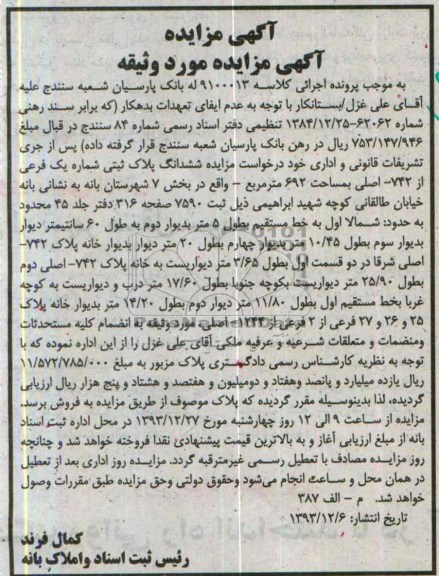 آگهی مزایده
آگهی مزایده مورد وثیقه
به موجب پرونده اجرائی کلاسه ۹۱۰۰۰۱۳ له بانک پارسیان شعبه سنندج علیه
آقای علی غزل/بستانکار با توجه به عدم ایفای تعهدات بدهکار (که برابر سند رهنی
شماره ۶۲۰۶۲-۱۳۸۴/۱۲/۲۵ تنظیمی دفتر اسناد رسمی شماره ۸۴ سنندج در قبال مبلغ
۷۵۳/۱۴۷/۹۴۶ ریال در رهن بانک پارسیان شعبه سنندج قرار گرفته داده) پس از جری
تشریفات قانونی و اداری خود درخواست مزایده ششدانگ پلاک ثبتی شماره یک فرعی
از ۷۴۲- اصلی بمساحت ۶۹۲ مترمربع - واقع در بخش ۷ شهرستان بانه به نشانی بانه
خیابان طالقانی کوچه شهید ابراهیمی ذیل ثبت ۷۵۹۰ صفحه ۳۱۶ دفتر جلد ۴۵ محدود
به حدود: شمالا اول به خط مستقیم بطول ۵ متر بدیوار دوم به طول ۶۰ سانتیمتر دیوار
بدیوار سوم بطول ۱۰/۴۵ متر بدیوار چهارم بطول ۲۰ متر دیوار بدیوار خانه پلاک ۷۴۲-
اصلی شرقا در دو قسمت اول بطول ۳/۶۵ متر دیواریست به خانه پلاک ۷۴۲- اصلی دوم
بطول ۲۵/۹۰ متر دیواریست بکوچه جنوبا بطول ۱۷/۶۰ متر درب و دیواریست به کوچه
غربا بخط مستقیم اول بطول ۱۱/۸۰ متر دیوار دوم بطول ۱۴/۲۰ متر بدیوار خانه پلاک
۲۵ و ۲۶ و ۲۷ فرعی از ۲ فرعی از ۱۲۴۳- اصلی، مورد وثیقه به انضمام کلیه مستحدثات
ومنضمات و متعلقات شرعیه و عرفیه ملکی آقای علی غزل را از این اداره نموده که با
توجه به نظریه کارشناس رسمی دادگستری پلاک مزبور به مبلغ ۱۱/۵۷۲/۷۸۵/۰۰۰
ریال یازده میلیارد و پانصد وهفتاد و دومیلیون و هفتصد و هشتاد و پنج هزار ریال ارزیابی
گردیده، لذا بدینوسیله مقرر گردیده که پلاک موصوف از طریق مزایده به فروش برسد.
مزایده از ساعت ۹ الی ۱۲ روز چهارشنبه مورخ ۱۳۹۳/۱۲/۲۷ در محل اداره ثبت اسناد
بانه از مبلغ ارزیابی آغاز و به بالاترین قیمت پیشنهادی نقدا فروخته خواهد شد و چنانچه
روز مزایده مصادف با تعطیل رسمی غیرمترقبه گردد. مزایده روز اداری بعد از تعطیل
در همان محل و ساعت انجام می‌شود وحقوق دولتی وحق مزایده طبق مقررات وصول
خواهد شد. م - الف ۳۸۷
تاریخ انتشار: ۱۳۹۳/۱۲/۶
کمال فرند
رئیس ثبت اسناد واملاک بانه